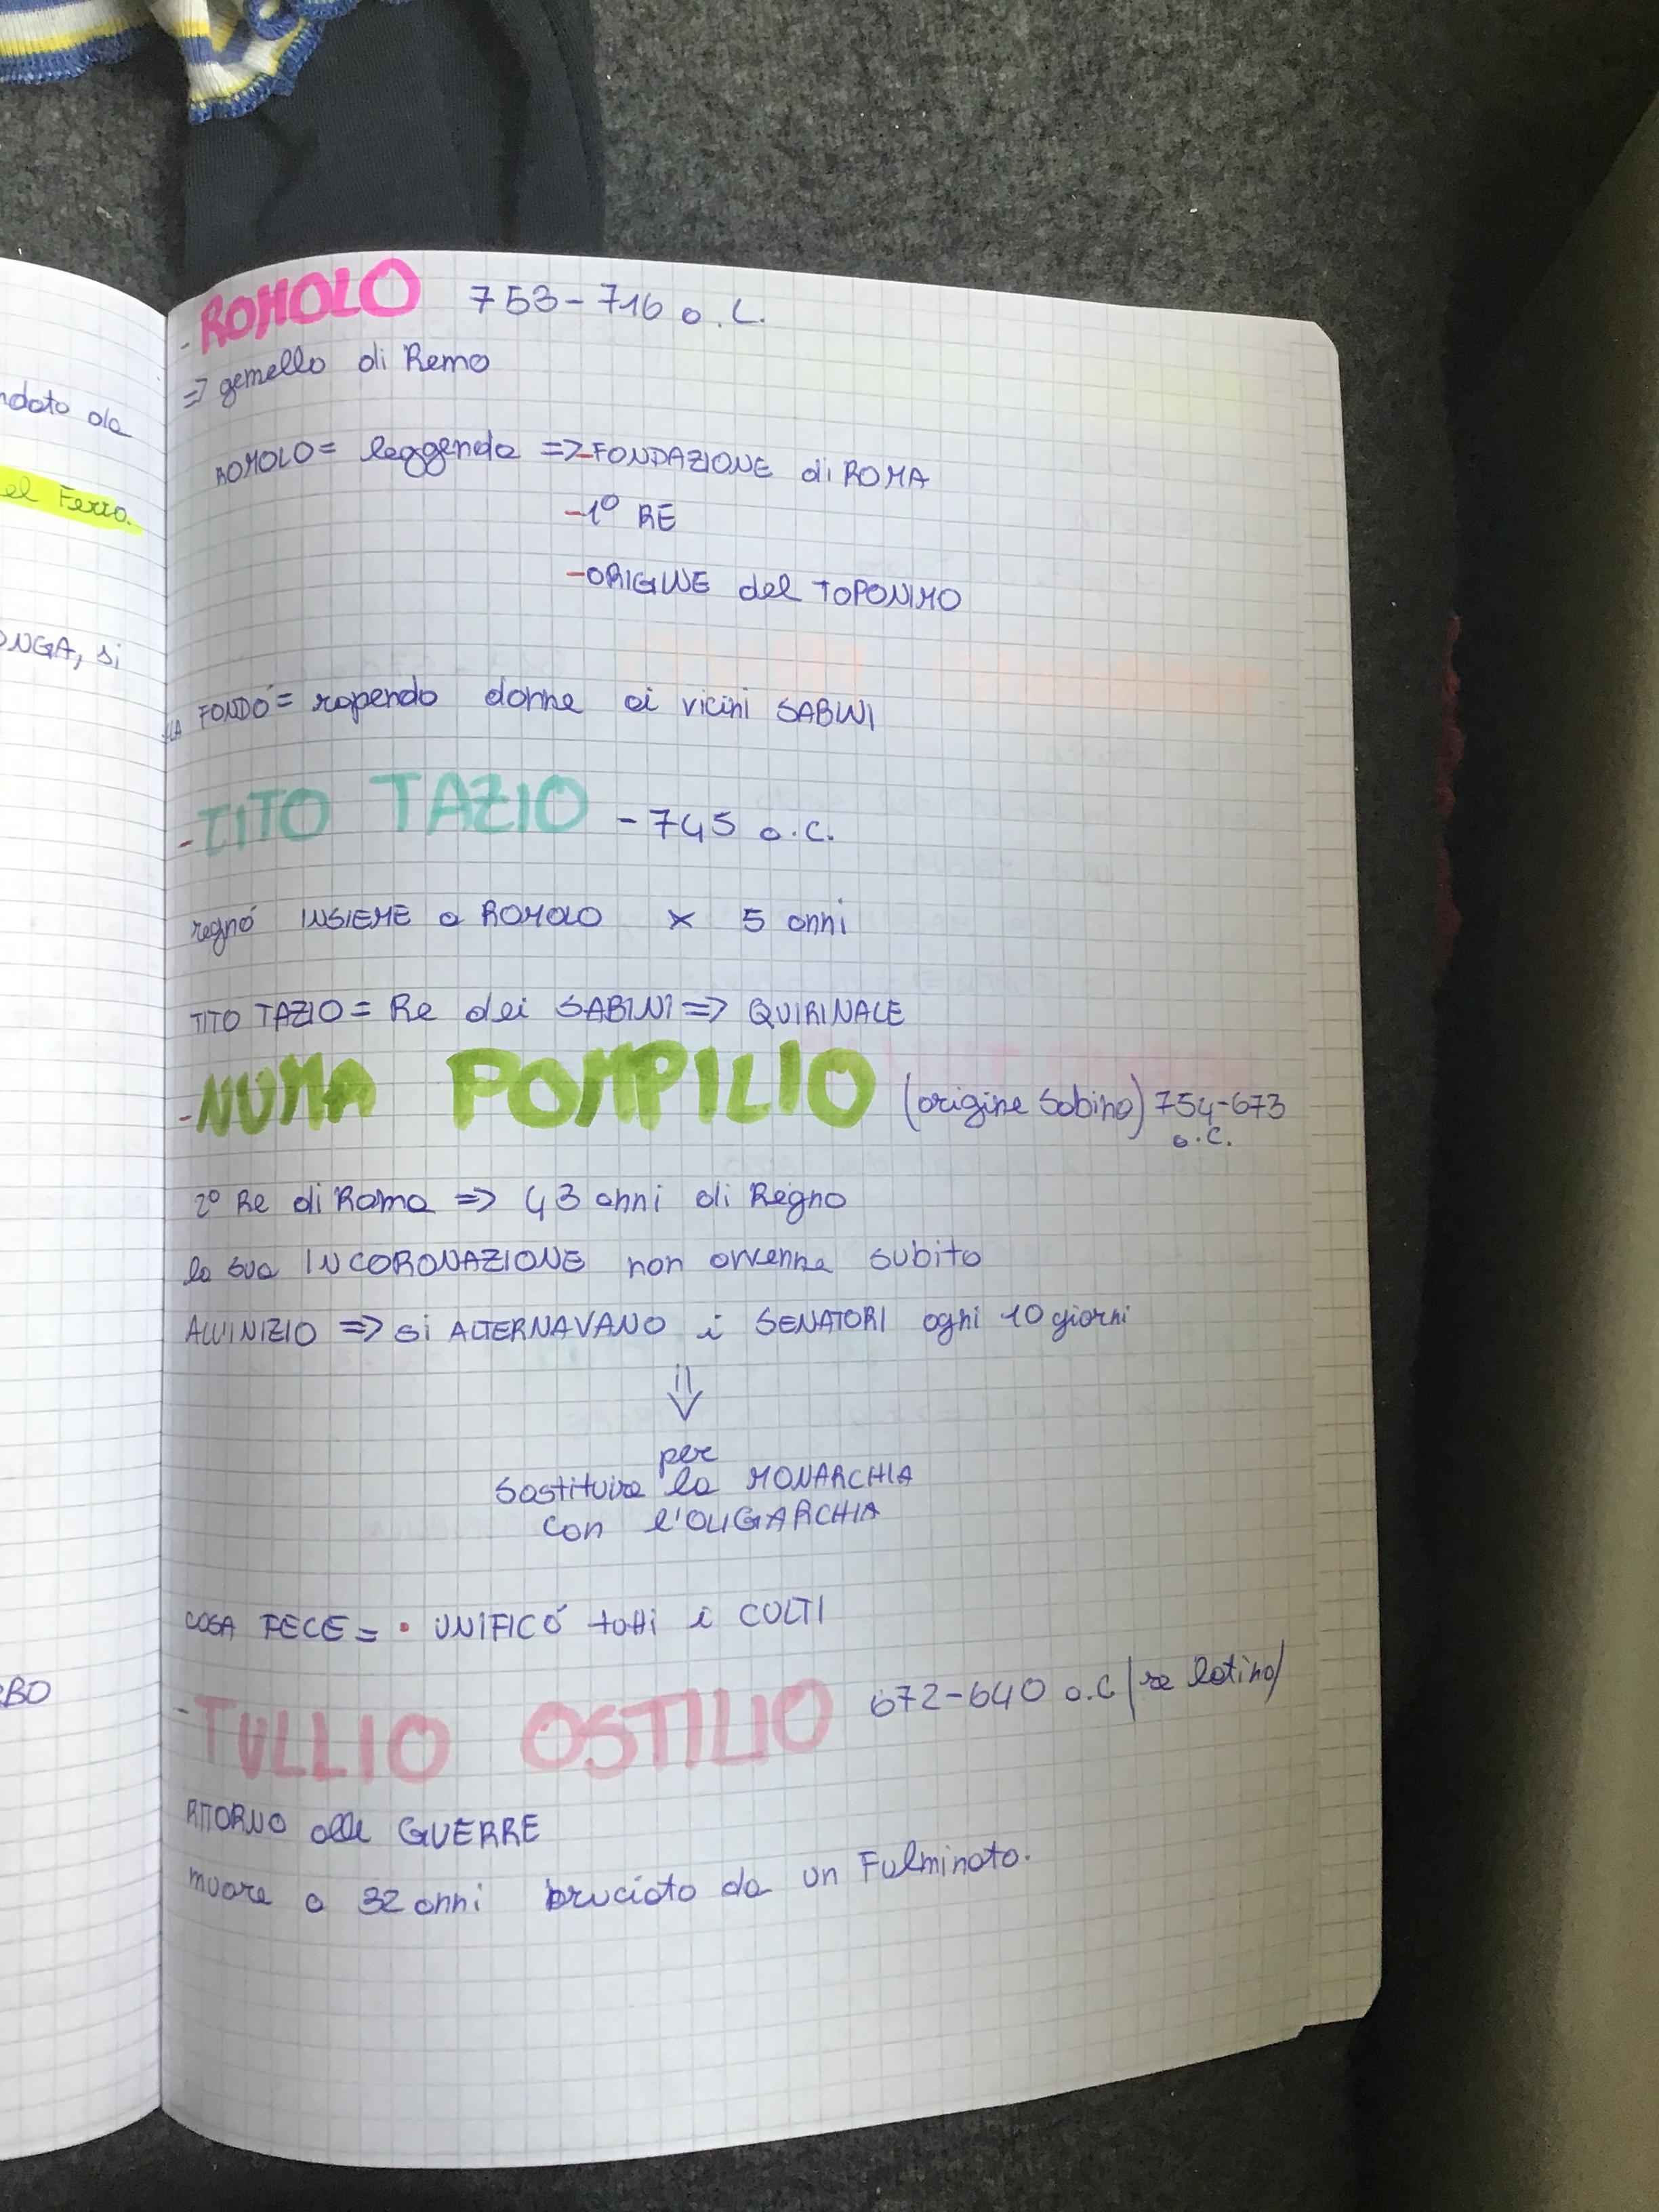 ndato da
el Ferro.
ONGA, si
BO
- ROMOLO 753-716 a.C.
=> gemello di Remo
ROMOLO = leggenda => - FONDAZIONE di ROMA
- 1° RE
- ORIGINE del TOPONIMO
LA FONDÓ = rapendo donne ai vicini SABINI
- TITO TAZIO - 745 a.C.
regnó INSIEME a ROMOLO x 5 anni
TITO TAZIO = Re dei SABINI => QUIRINALE
- NUMA POMPILIO (origine Sabina) 754-673
a.C.
2° Re di Roma => 43 anni di Regno
la sua INCORONAZIONE non avvenne subito
ALL'INIZIO => si ALTERNAVANO i SENATORI ogni 10 giorni
per
sostituire la MONARCHIA
con l'OLIGARCHIA
COSA FECE = • UNIFICÓ tutti i CULTI
- TULLIO OSTILIO 672-640 a.C (re latino)
RITORNO alle GUERRE
muore a 32 anni bruciato da un Fulminato.